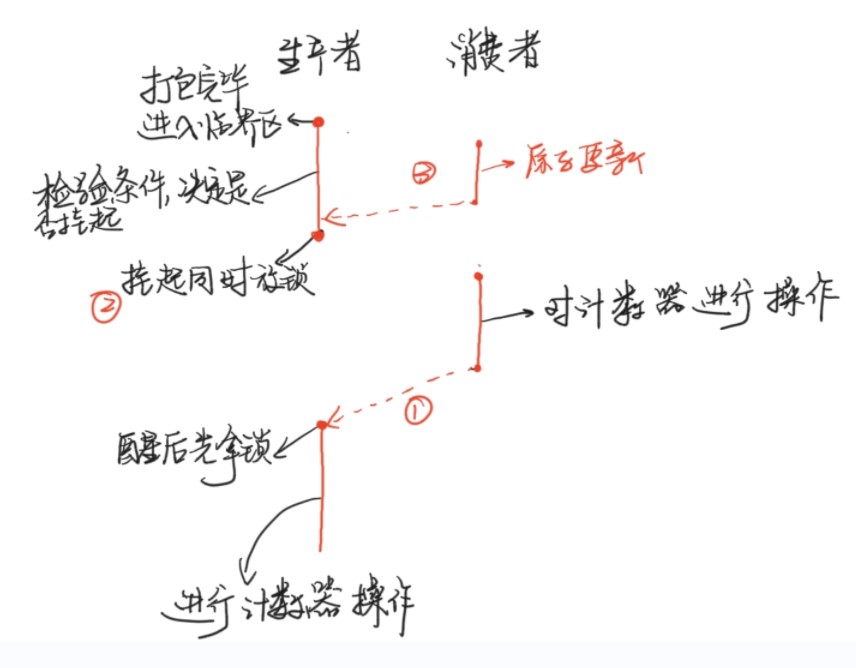 生产者
消费者
打包完毕
进入临界区
③
原子更新
检验条件,决定是
否挂起
挂起同时放锁
②
对计数器进行操作
①
醒后先拿锁
进行计数器操作